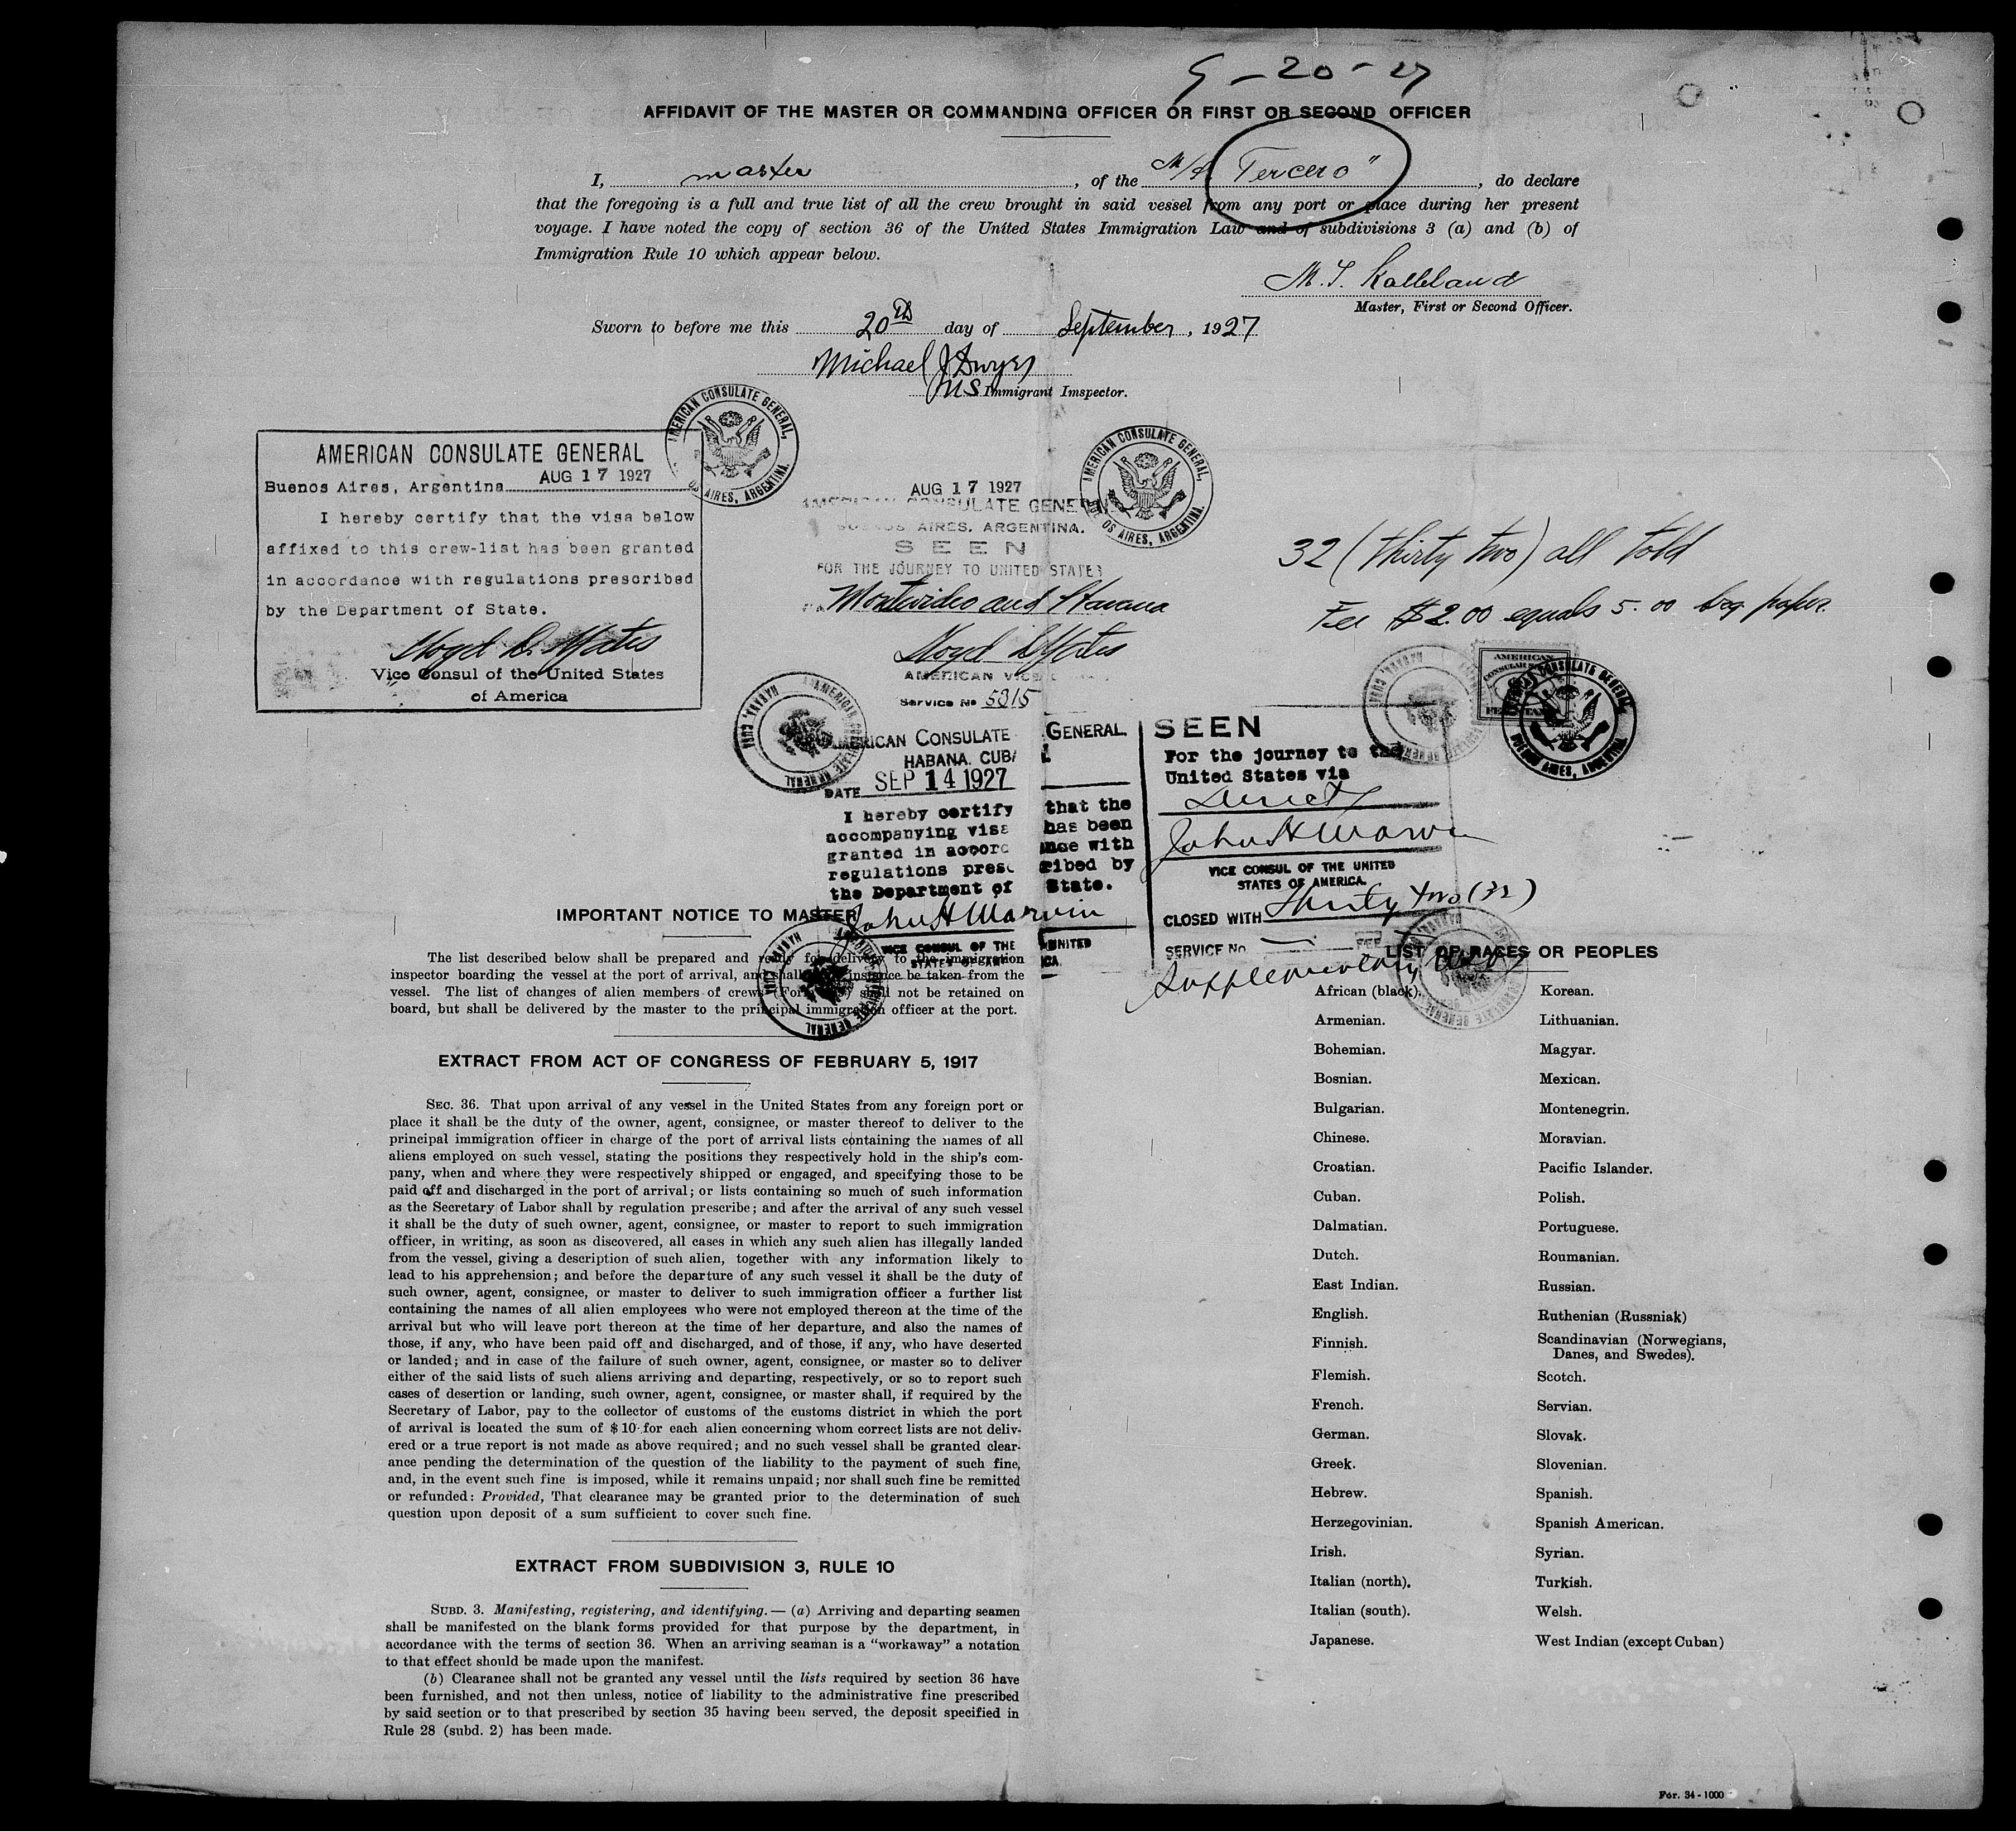 9-20-27
AFFIDAVIT OF THE MASTER OR COMMANDING OFFICER OR FIRST OR SECOND OFFICER
I, master, of the M/S. "Tercero", do declare
that the foregoing is a full and true list of all the crew brought in said vessel from any port or place during her present
voyage. I have noted the copy of section 36 of the United States Immigration Law and of subdivisions 3 (a) and (b) of
Immigration Rule 10 which appear below.
Master, First or Second Officer.
Sworn to before me this 20th day of September, 1927
Michael J Dwyer
Immigrant Imspector.
AMERICAN CONSULATE GENERAL
Buenos Aires, Argentina AUG 17 1927
I hereby certify that the visa below
affixed to this crew-list has been granted
in accordance with regulations prescribed
by the Department of State.
Vice Consul of the United States
of America
AMERICAN CONSULATE GENERAL,
OS AIRES, ARGENTINA.
AUG 17 1927
AMERICAN CONSULATE GENERAL
BUENOS AIRES, ARGENTINA.
SEEN
FOR THE JOURNEY TO UNITED STATES
Montevideo and Havana
AMERICAN VICE
Service No 5315
AMERICAN CONSULATE GENERAL,
OS AIRES, ARGENTINA.
32 (thirty two) all told
Fee $2.00 equals 5.00 arg. paper.
AMERICAN
AMERICAN CONSULATE GENERAL
HABANA, CUBA
AMERICAN CONSULATE GENERAL
HABANA. CUBA
DATE SEP 14 1927
I hereby certify that the
accompanying visa has been
granted in accordance with
regulations prescribed by
the Department of State.
John H Marvin
VICE CONSUL OF THE UNITED
STATES OF AMERICA.
SEEN
For the journey to the
United States via
Direct
John H Marvin
VICE CONSUL OF THE UNITED
STATES OF AMERICA.
CLOSED WITH Thirty two (32)
SERVICE No. — FEE
Supplementary
IMPORTANT NOTICE TO MASTER
The list described below shall be prepared and ready for delivery to the immigration
inspector boarding the vessel at the port of arrival, and shall instance be taken from the
vessel. The list of changes of alien members of crew (Form ) shall not be retained on
board, but shall be delivered by the master to the principal immigration officer at the port.
EXTRACT FROM ACT OF CONGRESS OF FEBRUARY 5, 1917
SEC. 36. That upon arrival of any vessel in the United States from any foreign port or
place it shall be the duty of the owner, agent, consignee, or master thereof to deliver to the
principal immigration officer in charge of the port of arrival lists containing the names of all
aliens employed on such vessel, stating the positions they respectively hold in the ship's com-
pany, when and where they were respectively shipped or engaged, and specifying those to be
paid off and discharged in the port of arrival; or lists containing so much of such information
as the Secretary of Labor shall by regulation prescribe; and after the arrival of any such vessel
it shall be the duty of such owner, agent, consignee, or master to report to such immigration
officer, in writing, as soon as discovered, all cases in which any such alien has illegally landed
from the vessel, giving a description of such alien, together with any information likely to
lead to his apprehension; and before the departure of any such vessel it shall be the duty of
such owner, agent, consignee, or master to deliver to such immigration officer a further list
containing the names of all alien employees who were not employed thereon at the time of the
arrival but who will leave port thereon at the time of her departure, and also the names of
those, if any, who have been paid off and discharged, and of those, if any, who have deserted
or landed; and in case of the failure of such owner, agent, consignee, or master so to deliver
either of the said lists of such aliens arriving and departing, respectively, or so to report such
cases of desertion or landing, such owner, agent, consignee, or master shall, if required by the
Secretary of Labor, pay to the collector of customs of the customs district in which the port
of arrival is located the sum of $10 for each alien concerning whom correct lists are not deliv-
ered or a true report is not made as above required; and no such vessel shall be granted clear-
ance pending the determination of the question of the liability to the payment of such fine,
and, in the event such fine is imposed, while it remains unpaid; nor shall such fine be remitted
or refunded: Provided, That clearance may be granted prior to the determination of such
question upon deposit of a sum sufficient to cover such fine.
EXTRACT FROM SUBDIVISION 3, RULE 10
SUBD. 3. Manifesting, registering, and identifying.— (a) Arriving and departing seamen
shall be manifested on the blank forms provided for that purpose by the department, in
accordance with the terms of section 36. When an arriving seaman is a "workaway" a notation
to that effect should be made upon the manifest.
(b) Clearance shall not be granted any vessel until the lists required by section 36 have
been furnished, and not then unless, notice of liability to the administrative fine prescribed
by said section or to that prescribed by section 35 having been served, the deposit specified in
Rule 28 (subd. 2) has been made.
LIST OF RACES OR PEOPLES
African (black). Korean.
Armenian. Lithuanian.
Bohemian. Magyar.
Bosnian. Mexican.
Bulgarian. Montenegrin.
Chinese. Moravian.
Croatian. Pacific Islander.
Cuban. Polish.
Dalmatian. Portuguese.
Dutch. Roumanian.
East Indian. Russian.
English. Ruthenian (Russniak)
Finnish. Scandinavian (Norwegians,
Danes, and Swedes).
Flemish. Scotch.
French. Servian.
German. Slovak.
Greek. Slovenian.
Hebrew. Spanish.
Herzegovinian. Spanish American.
Irish. Syrian.
Italian (north). Turkish.
Italian (south). Welsh.
Japanese. West Indian (except Cuban)
For. 34-1000